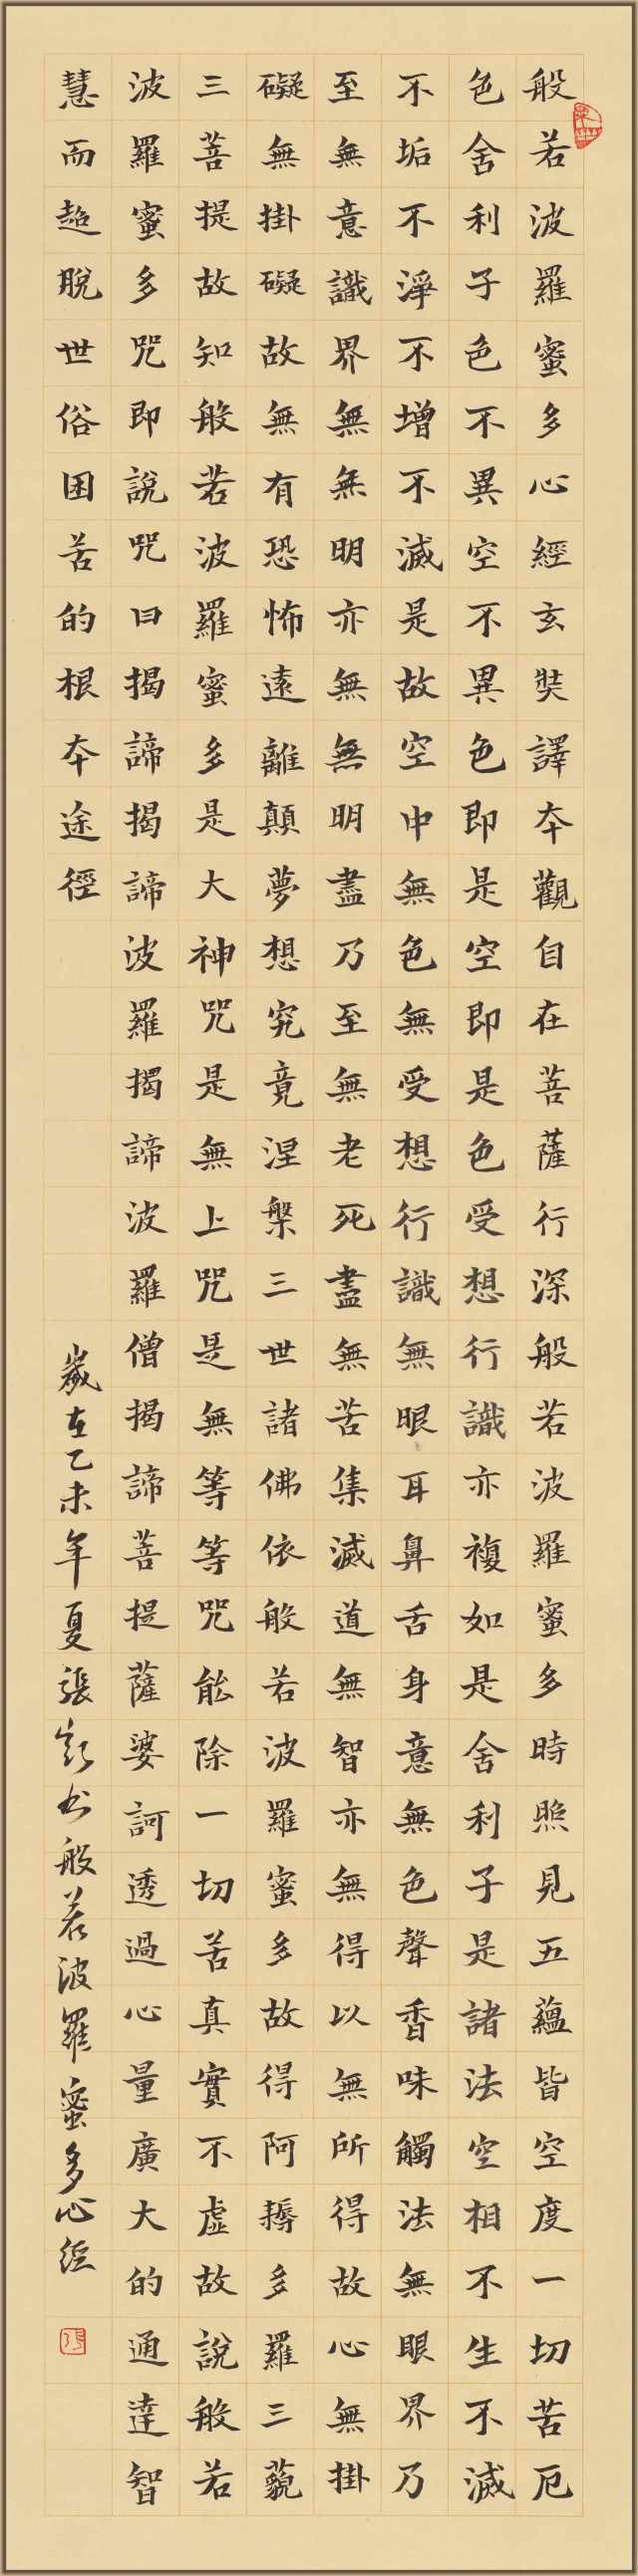 般若波羅蜜多心經玄奘譯本觀自在菩薩行深般若波羅蜜多時照見五蘊皆空度一切苦厄
色舍利子色不異空不異色即是空即是色受想行識亦複如是舍利子是諸法空相不生不滅
不垢不淨不增不滅是故空中無色無受想行識無眼耳鼻舌身意無色聲香味觸法無眼界乃
至無意識界無無明亦無無明盡乃至無老死盡無苦集滅道無智亦無得以無所得故心無掛
礙無掛礙故無有恐怖遠離顛夢想究竟涅槃三世諸佛依般若波羅蜜多故得阿耨多羅三藐
三菩提故知般若波羅蜜多是大神咒是無上咒是無等等咒能除一切苦真實不虛故說般若
波羅蜜多咒即說咒曰揭諦揭諦波羅揭諦波羅僧揭諦菩提薩婆訶透過心量廣大的通達智
慧而超脫世俗困苦的根本途徑
歲在乙未年夏張书般若波羅蜜多心經